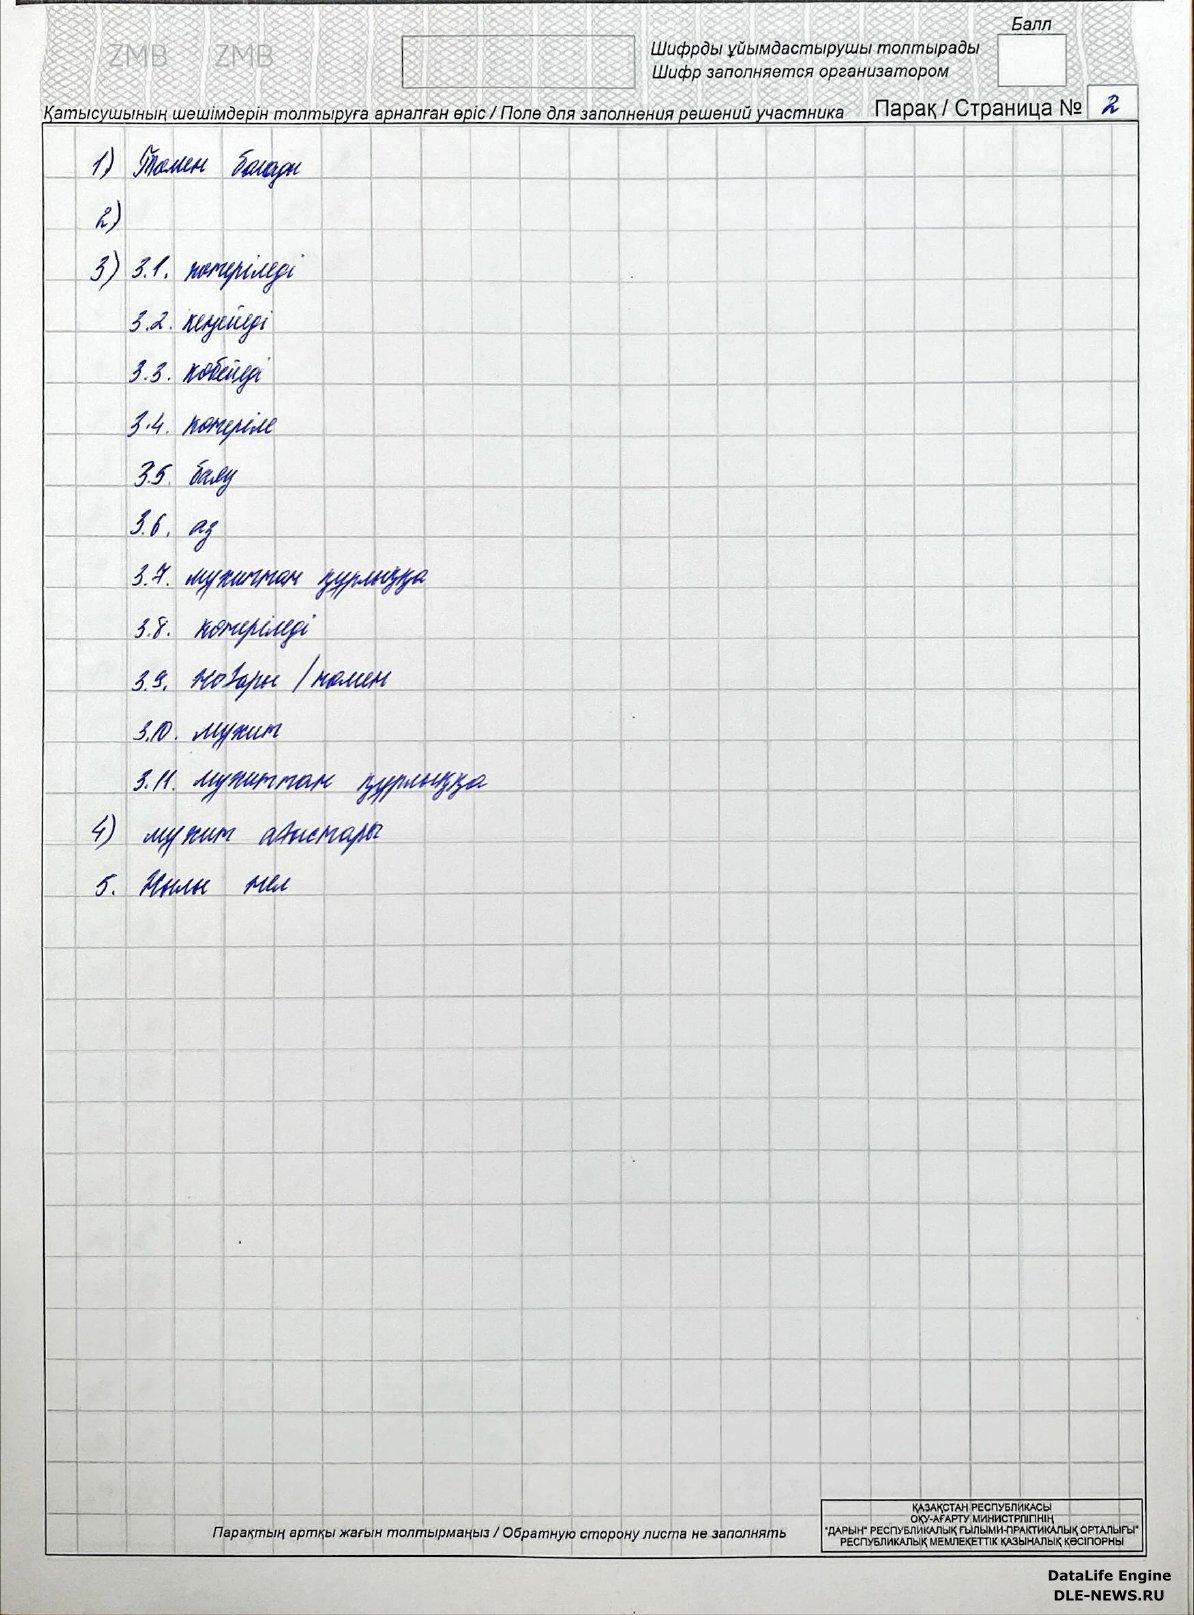 ZMB ZMB
Балл
Шифрды ұйымдастырушы толтырады
Шифр заполняется организатором
Қатысушының шешімдерін толтыруға арналған өріс / Поле для заполнения решений участника
Парақ / Страница № 2
1) Төмен болады
2)
3) 3.1. көтеріледі
3.2. кеңейеді
3.3. көбейеді
3.4. көтеріле
3.5. баяу
3.6. аз
3.7. мұхиттан құрлыққа
3.8. көтеріледі
3.9. жоғары / төмен
3.10. мұхит
3.11. мұхиттан құрлыққа
4) мұхит ағыстары
5. Жылы жел
Парақтың артқы жағын толтырмаңыз / Обратную сторону листа не заполнять
ҚАЗАҚСТАН РЕСПУБЛИКАСЫ
ОҚУ-АҒАРТУ МИНИСТРЛІГІНІҢ
"ДАРЫН" РЕСПУБЛИКАЛЫҚ ҒЫЛЫМИ-ПРАКТИКАЛЫҚ ОРТАЛЫҒЫ"
РЕСПУБЛИКАЛЫҚ МЕМЛЕКЕТТІК ҚАЗЫНАЛЫҚ КӘСІПОРНЫ
DataLife Engine
DLE-NEWS.RU